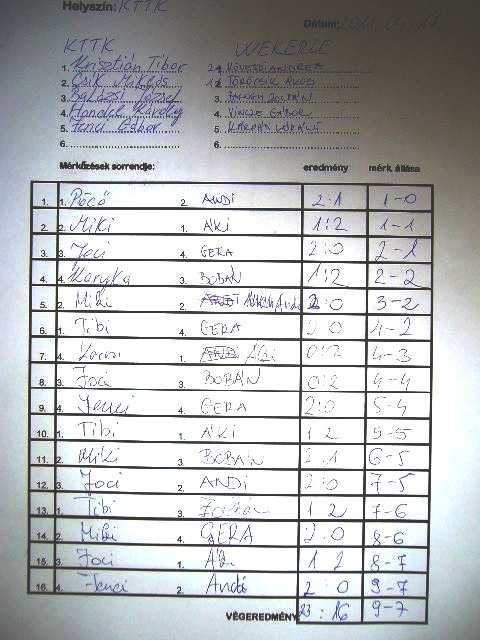 Helyszín: KTTK
Dátum: 2011. 04. 17
KTTK WEKERLE
1. Krisztián Tibor 2
2. Csik Miklós 1 TÖRÖCSIK ÁKOS
3. József 3
4. Károly 4 GÁBOR
5. Jenei Gábor 5.
6. 6.
Mérkőzések sorrendje: eredmény mérk. állása
1. 1. 2. ANDI 2:1 1-0
2. 2. Miki 1. ÁKI 1:2 1-1
3. 3. Joci 4. GERA 2:0 2-1
4. 4. Karyka 3. BOBÁN 1:2 2-2
5. 2. Miki 2. Andi 2:0 3-2
6. 1. Tibi 4. GERA 2:0 4-2
7. 4. 1. Áki 0:2 4-3
8. 3. Joci 3. BOBÁN 0:2 4-4
9. 4. Jenei 4. GERA 2:0 5-4
10. 1. Tibi 1. ÁKI 1 2 5-5
11. 2. Miki 3. BOBÁN 2 1 6-5
12. 3. Joci 2. ANDI 2:0 7-5
13. 1. Tibi 3. Zoltán 1 2 7-6
14. 2. Miki 4. GERA 2:0 8-6
15. 3. Joci 1. Áki 1 2 8-7
16. 4. Jenei 2. Andi 2 0 9-7
VÉGEREDMÉNY: 23:16 9-7